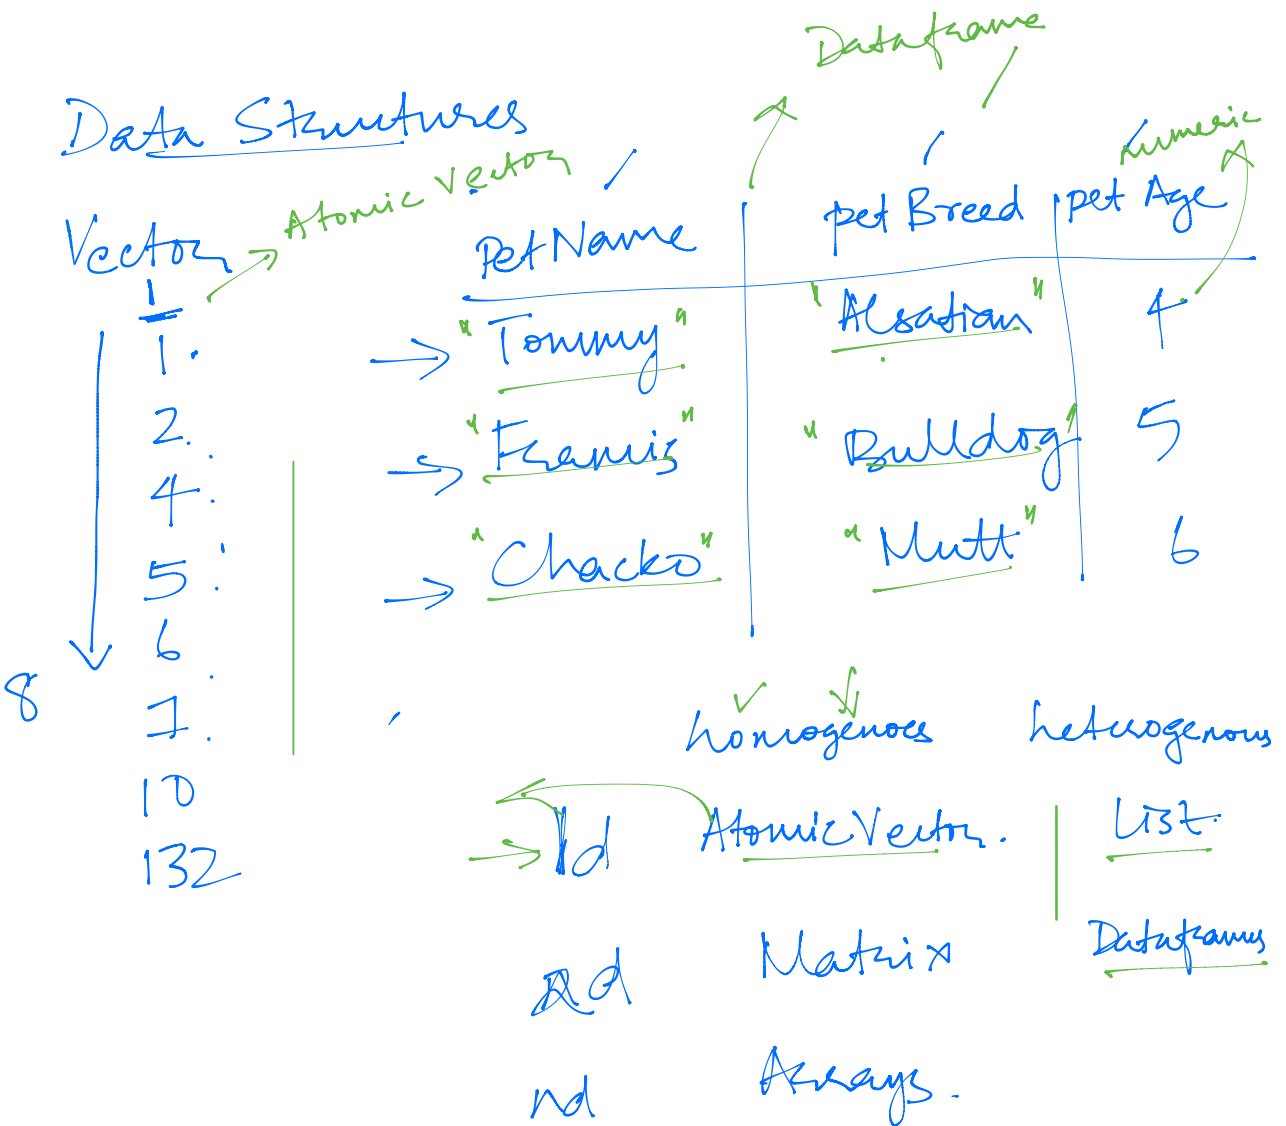 Dataframe
Data Structures
Atomic Vector
numeric
Vector
Pet Name pet Breed pet Age
1. "Tommy" "Alsatian" 4
2. "Framis" "Bulldog" 5
4.
5. "Chacko" "Mutt" 6
6
8
7.
homogenoes heterogenous
10
1d Atomic Vector. List.
132
2d Matrix Dataframes
nd Arrays.